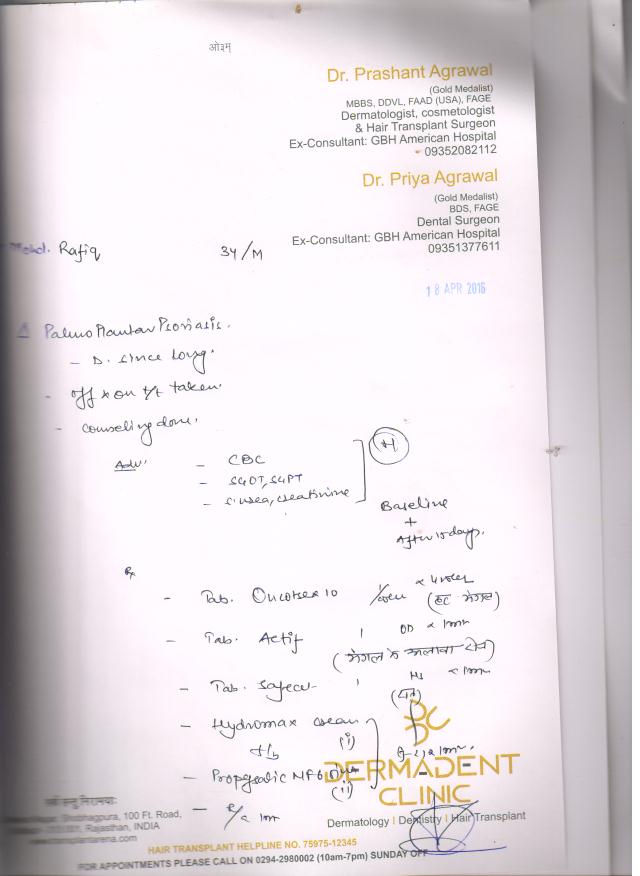 ओ३म्
Dr. Prashant Agrawal
(Gold Medalist)
MBBS, DDVL, FAAD (USA), FAGE
Dermatologist, cosmetologist
& Hair Transplant Surgeon
Ex-Consultant: GBH American Hospital
09352082112
Dr. Priya Agrawal
(Gold Medalist)
BDS, FAGE
Dental Surgeon
Ex-Consultant: GBH American Hospital
09351377611
Mohd. Rafiq 34/M
18 APR 2016
Δ Palmo Plantar Psoriasis.
- D. since long.
- off & on t/t taken.
- counseling done.
Adv. - CBC
- SGOT, SGPT
- S. urea, creatinine
Baseline
+
After 15 days.
Rx
- Tab. 10 (हर मंगल)
- Tab. Actif 1 OD x 1mn
(मंगल के अलावा रोज)
- Tab. 1 HS x 1mn
- Hydromax cream
(i)
- NF6
(ii)
- R/a 1m
DERMADENT
CLINIC
Dermatology | Dentistry | Hair Transplant
सर्वे सन्तु निरामयाः
Shobhagpura, 100 Ft. Road,
Rajasthan, INDIA
HAIR TRANSPLANT HELPLINE NO. 75975-12345
FOR APPOINTMENTS PLEASE CALL ON 0294-2980002 (10am-7pm) SUNDAY OFF